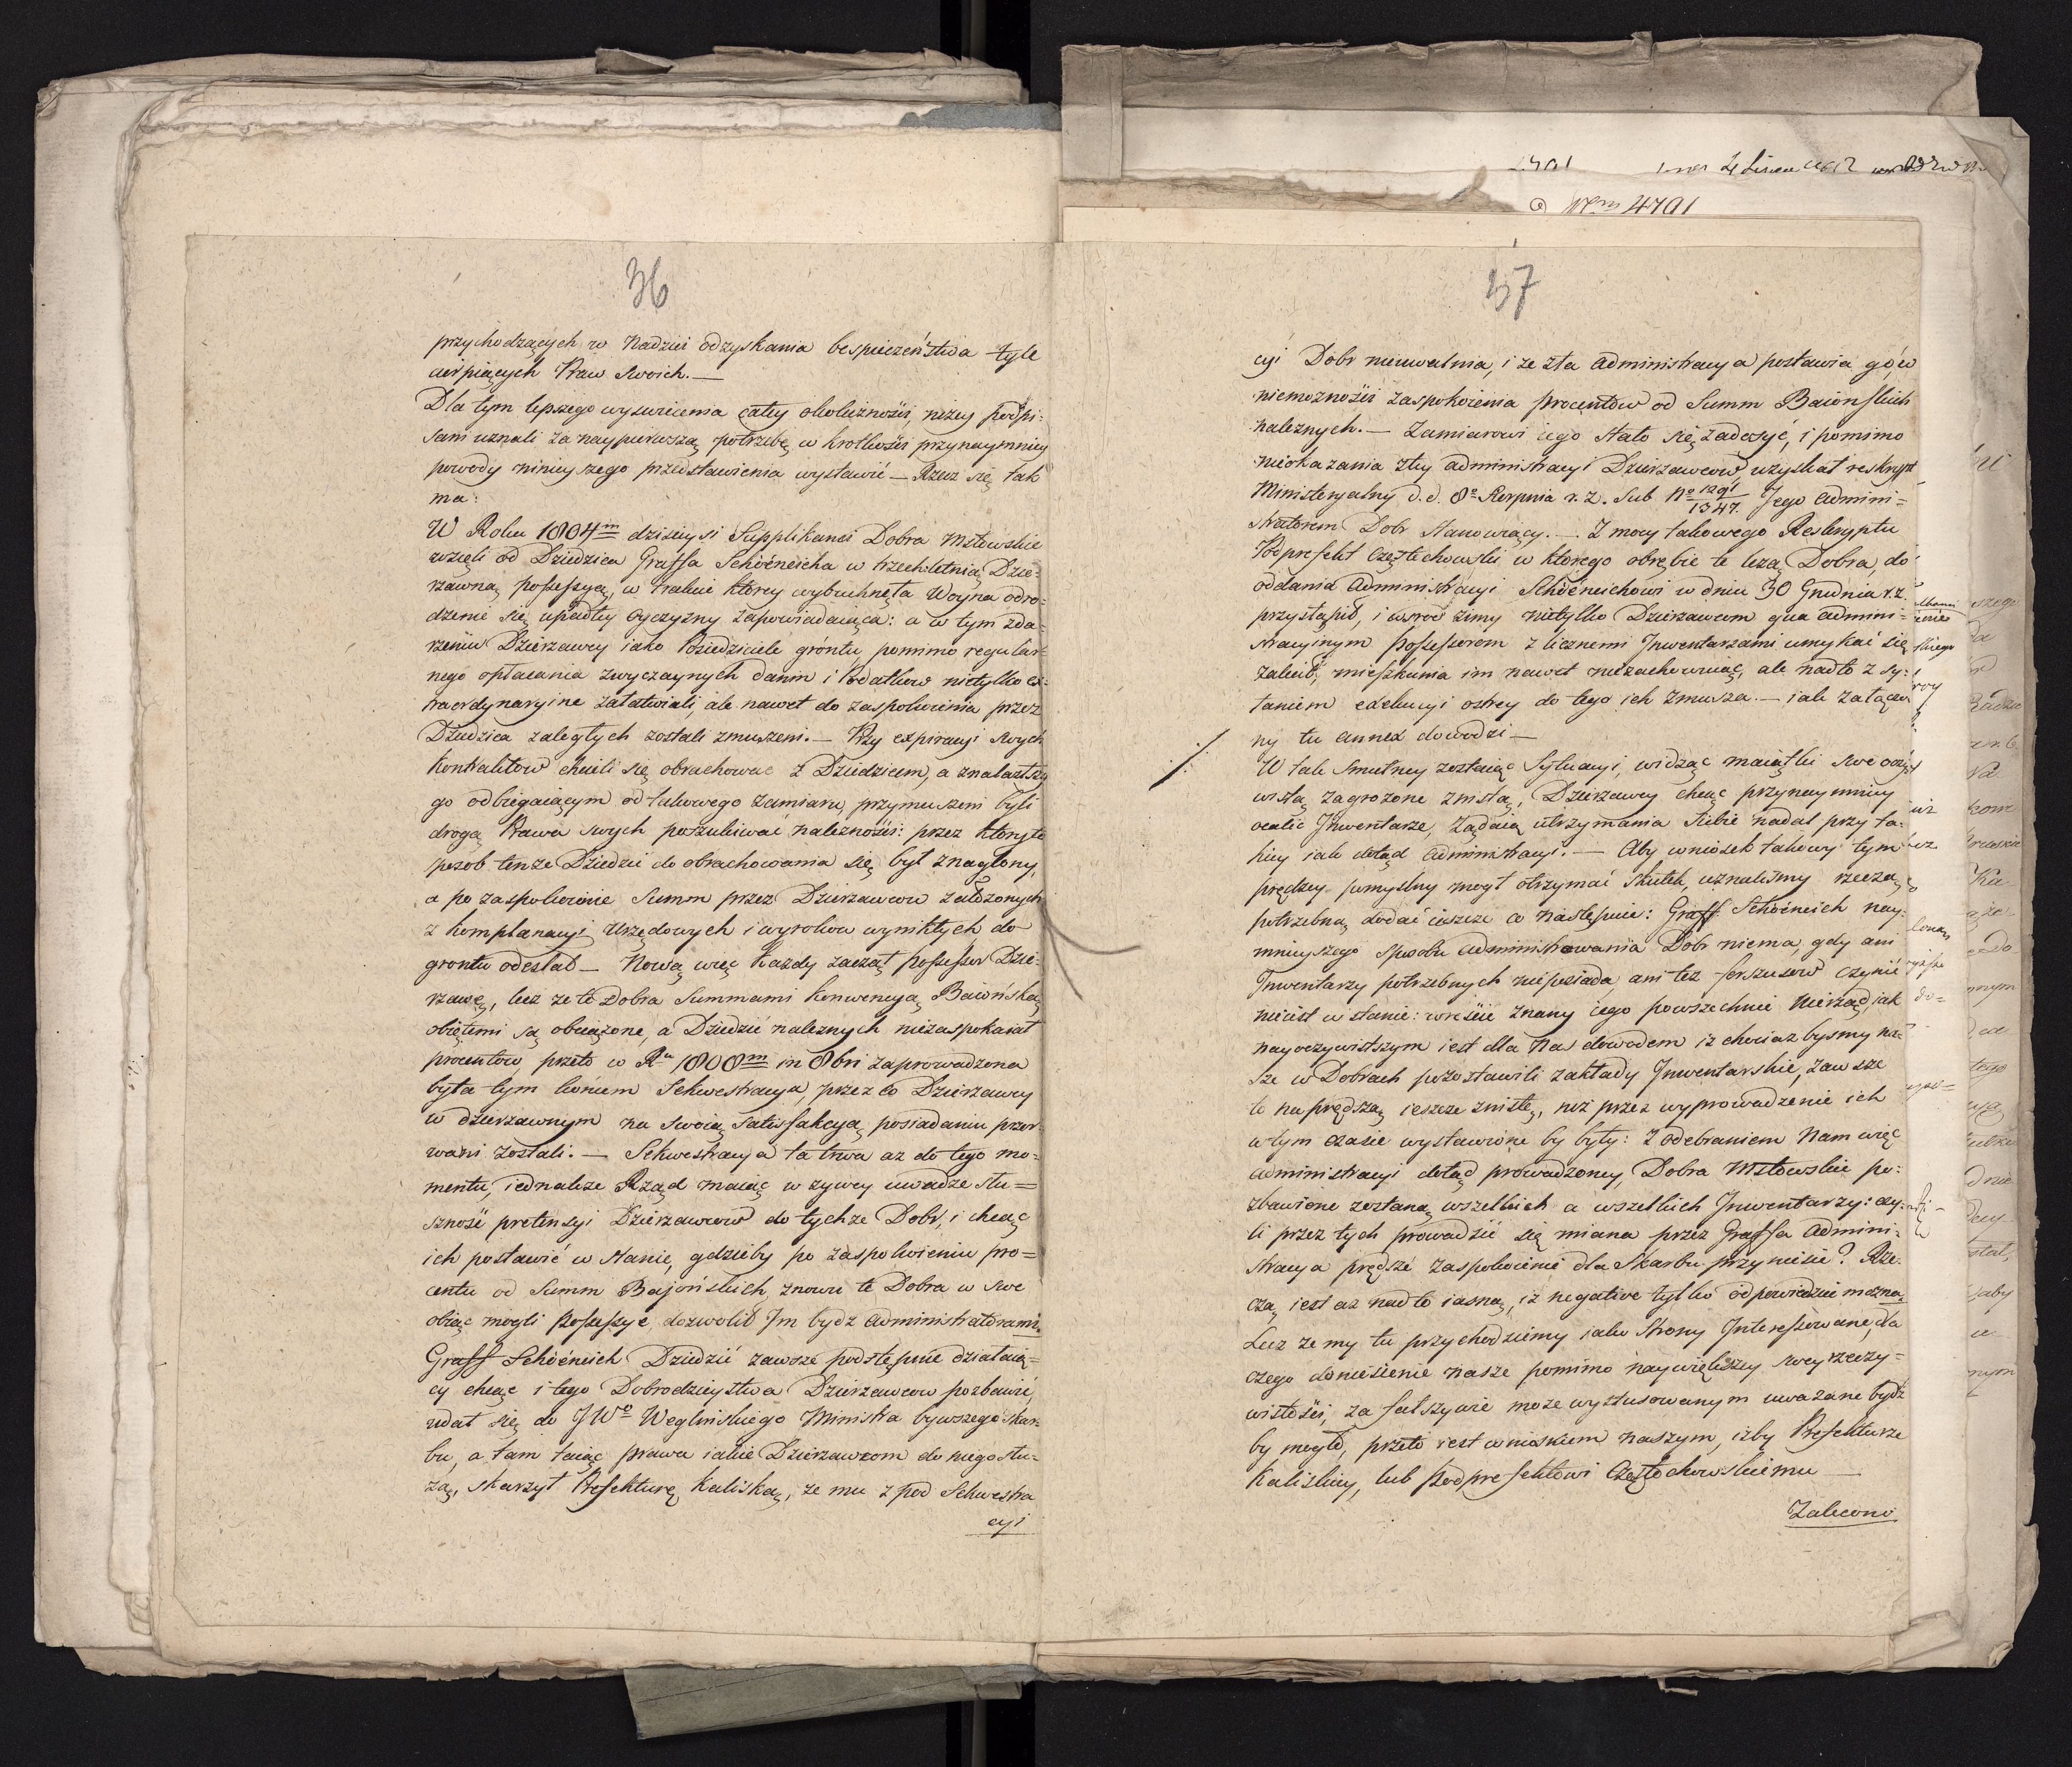 36
przychodzących w Nadziei odzyskania bespieczeństwa tyle
cierpiących Praw swoich. —
Dla tym lepszego wyswiecenia całey okoliczności, niżey podpi-
sani uznali za naypierwszą potrzebę w krotkości przynaymniey
powody ninieyszego przedstawienia wystawić — Rzecz się tak
ma:
W Roku 1804m dzisieysi Supplikanci Dobra Mstowskie
wzięli od Dziedzica Graffa Schöeneicha w trzechletnią Dzie-
rzawną possessyą, w trakcie ktorey wybuchnęła Woyna odro-
dzenie się upadłey Oyczyzny zapowiadaiąca: a w tym zda-
rzeniu Dzierzawcy iako Posiedziciele gróntu, pomimo regular-
nego opłacania zwyczaynych danin i Podatkow nietylko ex-
traordynaryine załatwiali, ale nawet do zaspokoienia przez
Dziedzica zaległych zostali zmuszeni. — Przy expiracyi swych
Kontraktow chcieli się obrachować z Dziedzicem, a znalazłszy
go odbiegaiącym od takowego zamiaru, przymuszeni byli
drogą Prawa swych poszukiwać należności: przez ktoryto
sposob tenże Dziedzic do obrachowania się był znaglony,
a po zaspokoienie Summ przez Dzierzawcow założonych
z komplanacyi Urzędowych i wyrokow wynikłych do
grontu odesłał — Nową więc każdy zaczął possessor Dzie-
rzawę, lecz że te Dobra Summami Konwencyą Baiońską
obiętemi są obciążone, a Dziedzic należnych niezaspokaiał
procentow, przeto w Ru 1808m m 8bri zaprowadzona
była tym koncem Sekwestracya, przez co Dzierzawcy
w dzierzawnym na swoią satisfakcyą posiadaniu przer-
wani zostali. — Sekwestracya ta trwa aż do tego mo-
mentu, iednakże Rząd maiąc w żywey uwadze słu=
szność pretensyi Dzierzawcow do tychże Dobr, i chcąc
ich postawić w stanie, gdzieby po zaspokoieniu pro=
centu od Summ Bajońskich, znowu te Dobra w swe
obiąc mogli Possessye, dozwolił Im bydz Administratorami.
Graff Schöeneich Dziedzic zawsze podstępnie działaią=
cy chcąc i tego Dobrodzieystwa Dzierzawcow pozbawić,
udał się do JWo Węglinskiego Ministra bywszego Skar-
bu, a tam taiąc prawa iakie Dzierzawcom do niego słu-
żą, skarżył Prefekturę Kaliską, że mu z pod Sekwestra
cyi
37
cyi Dobr nieuwalnia, i że zła administracya postawia go w
niemożności zaspokoienia procentow od Summ Baionskich
należnych. — Zamiarowi iego stało się zadosyć, i pomimo
nieokazania złey administracyi Dzierzawcow, uzyskał reskrypt
Ministeryalny d. d. 8o Sierpnia r. z. sub No 1291/1347. Jego admini=
stratorem Dobr stanowiący. — Z mocy takowego Reskryptu
Podprefekt Częstochowski w ktorego obrębie te leżą Dobra, do
oddania administracyi Schöeneichowi w dniu 30 Grudnia r. z.
przystąpił, i wsrod zimy nietylko Dzierzawcom qua admini-
stracyinym Possessorom z licznemi Inwentarzami umykać się
zalecił, mieszkania im nawet niezachowuiąc, ale nadto z sy-
łaniem exekucyi ostrey do tego ich zmusza. — iak załączo-
ny tu annex dowodzi —
W tak smutney zostaiąc Sytuacyi, widząc maiątki swe oczy-
wistą zagrożone znistą, Dzierzawcy chcąc przynaymniey
ocalić Inwentarze, żądaią utrzymania siebie nadal przy ta-
kiey iak dotąd administracyi. — Aby wniosek takowy tym
prędzey pomyslny mogł otrzymać skutek, uznalismy rzeczą
potrzebną dodać ieszcze co następuie: Graff Schöeneich nay-
mnieyszego sposobu administrowania Dobr niema, gdy ani
Inwentarzy potrzebnych nieposiada, ani też forszusow czynić
nieiest w stanie: wreście znany iego powszechnie Nierząd, iak
nayoczywistszym iest dla Nas dowodem iż chociaż bysmy na-
sze w Dobrach pozostawili zakłady Inwentarskie, zawsze
te na prędszą ieszcze znistę, niż przez wyprowadzenie ich
w tym czasie wystawione by były: Z odebraniem Nam więc
administracyi dotąd prowadzoney, Dobra Mstowskie po-
zbawione zostaną wszelkich a wszelkich Inwentarzy: czy-
li przez tych prowadzić się miana przez Graffa Admini-
stracya prędsze zaspokoienie dla Skarbu przyniesie? Rze-
czą iest aż nadto iasną, iż negative tylko odpowiedzieć można.
Lecz że my tu przychodziemy iako Strony Interessowane, dla
czego doniesienie nasze pomimo naywiększey swey rzeczy=
wistości, za fałszywie może wystosowanym uważane bydź
by mogło, przeto iest wnioskiem naszym, iżby Prefekturze
Kaliskiey, lub Podprefektowi Częstochowskiemu —
Zalecono